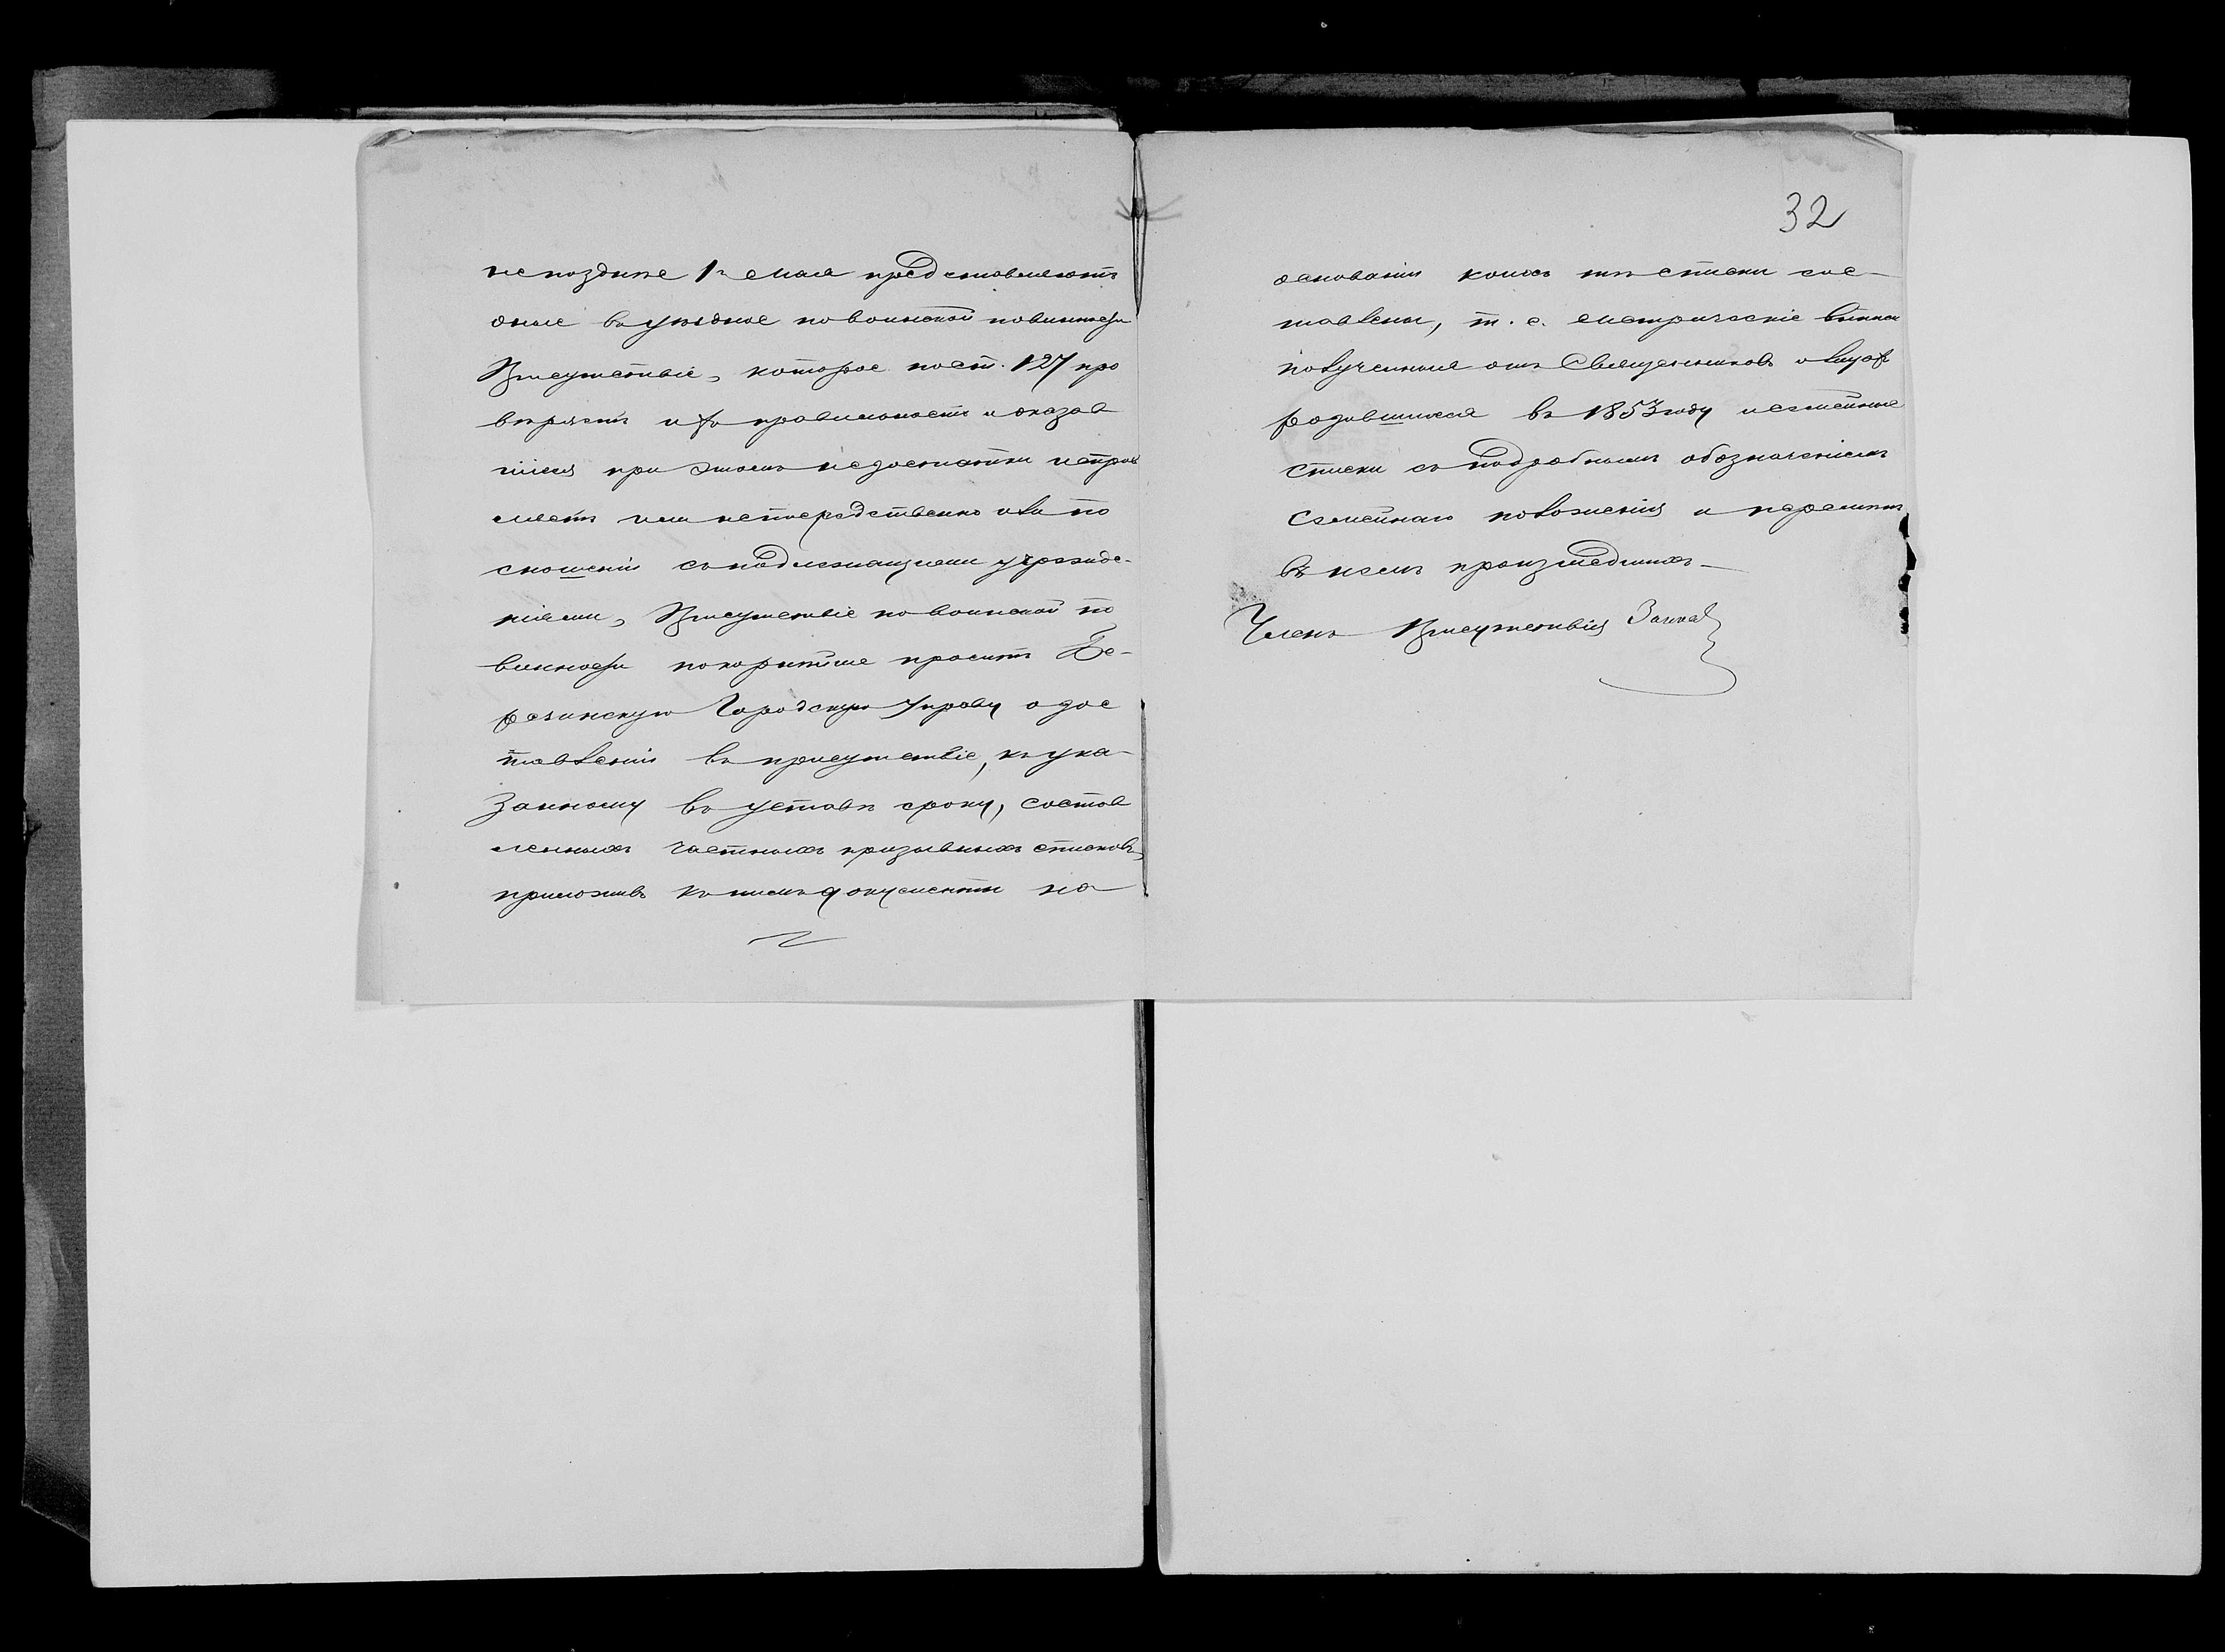 не позднѣе 1го Мая представляютъ
оные въ уѣздное по воинской повинности
Присутствіе, которое по ст. 127 про
вѣряетъ ихъ правильность и оказав
шіеся при этомъ недостатки исправ
ляетъ или непосредственно или по
сношеніи съ надлежащими учрежде-
ніями, Присутствіе по воинской по
винности покорнѣйше проситъ Бе-
резинскую Городскую Управу о дос
тавленіи въ присутствіе, къ ука-
занному въ уставѣ сроку, состав
ленныхъ частныхъ призывныхъ списковъ,
приложивъ къ нимъ документы на
32
основаніи коихъ тѣ списки сос-
тавлены, т. е. метрическіе
полученныя отъ Священниковъ о лицахъ
родившихся въ 1853 году и семейные
списки съ подробнымъ обозначеніемъ
семейнаго положенія и перемѣнъ
въ немъ происшедшихъ
Членъ Присутствія